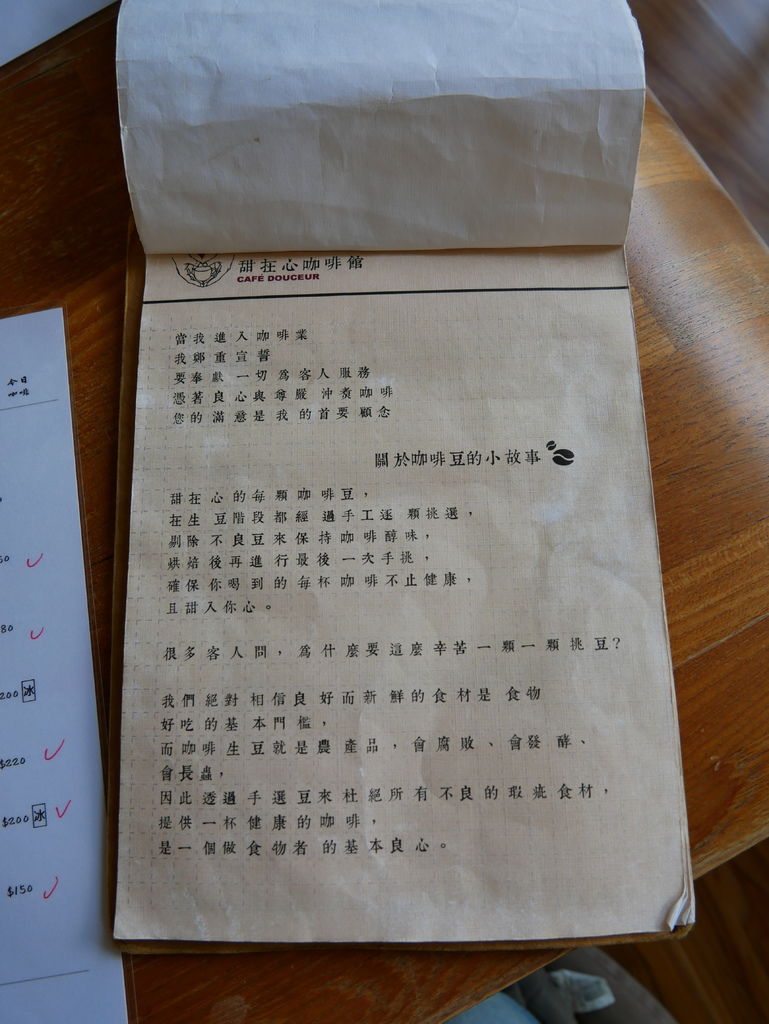 甜在心咖啡館
CAFÉ DOUCEUR
當我進入咖啡業
我鄭重宣誓
要奉獻一切為客人服務
憑著良心與尊嚴沖煮咖啡
您的滿意是我的首要顧念
關於咖啡豆的小故事
甜在心的每顆咖啡豆，
在生豆階段都經過手工逐顆挑選，
剔除不良豆來保持咖啡醇味，
烘焙後再進行最後一次手挑，
確保你喝到的每杯咖啡不止健康，
且甜入你心。
很多客人問，為什麼要這麼辛苦一顆一顆挑豆?
我們絕對相信良好而新鮮的食材是食物
好吃的基本門檻，
而咖啡生豆就是農產品，會腐敗、會發酵、
會長蟲，
因此透過手選豆來杜絕所有不良的瑕疵食材，
提供一杯健康的咖啡，
是一個做食物者的基本良心。
今日
咖啡
50
80
200 冰
$220
$200 冰
$150